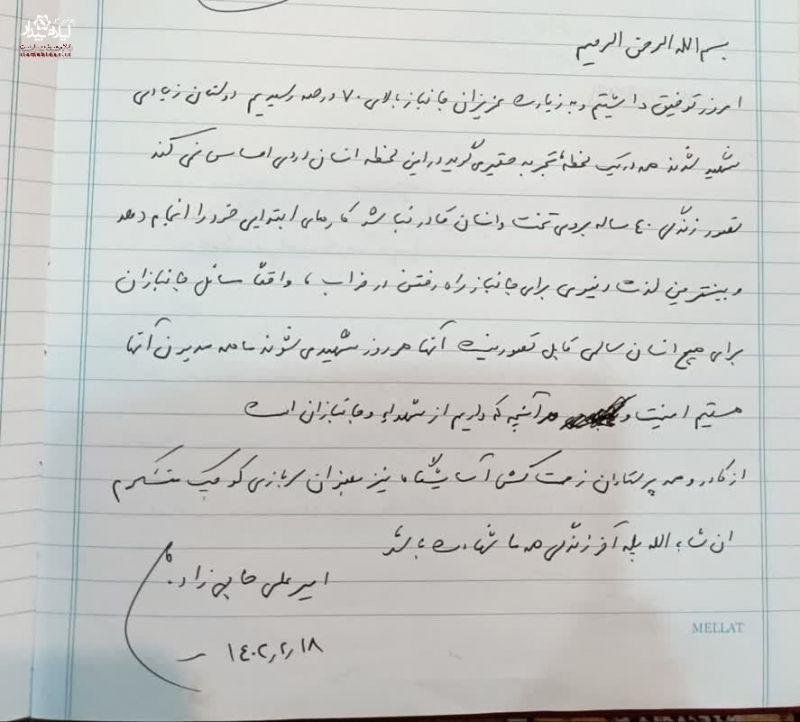 بسم الله الرحمن الرحیم
امروز توفیق داشتیم و به زیارت عزیزان جانباز بالای ۷۰ درصد رسیدیم دوستان زیادی
شهید شدند همه در یک لحظه تجربه میگوید در این لحظه انسان دردی احساس نمی کند
تصور زندگی ۴۰ ساله بر روی تخت و انسان قادر نباشد کارهای ابتدایی خود را انجام دهد
و بیشترین لذت دنیوی برای جانباز راه رفتن در خواب، واقعاً مسائل جانبازان
برای هیچ انسان سالمی قابل تصور نیست آنها هر روز شهید می شوند ما همه مدیون آنها
هستیم امنیت و هر آنچه که داریم از شهداء و جانبازان است
از کادر و همه پرستاران زحمت کش آسایشگاه نیز بعنوان سربازی کوچک متشکرم
ان شاء الله پله آخر زندگی همه ما شهادت باشد
امیرعلی حاجی زاده
۱۴۰۲٫۲٫۱۸
MELLAT